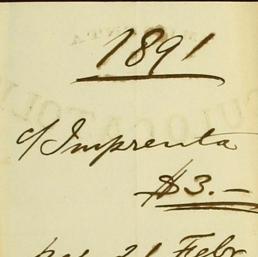 1891
c/Imprenta
$3.—
21 Febr